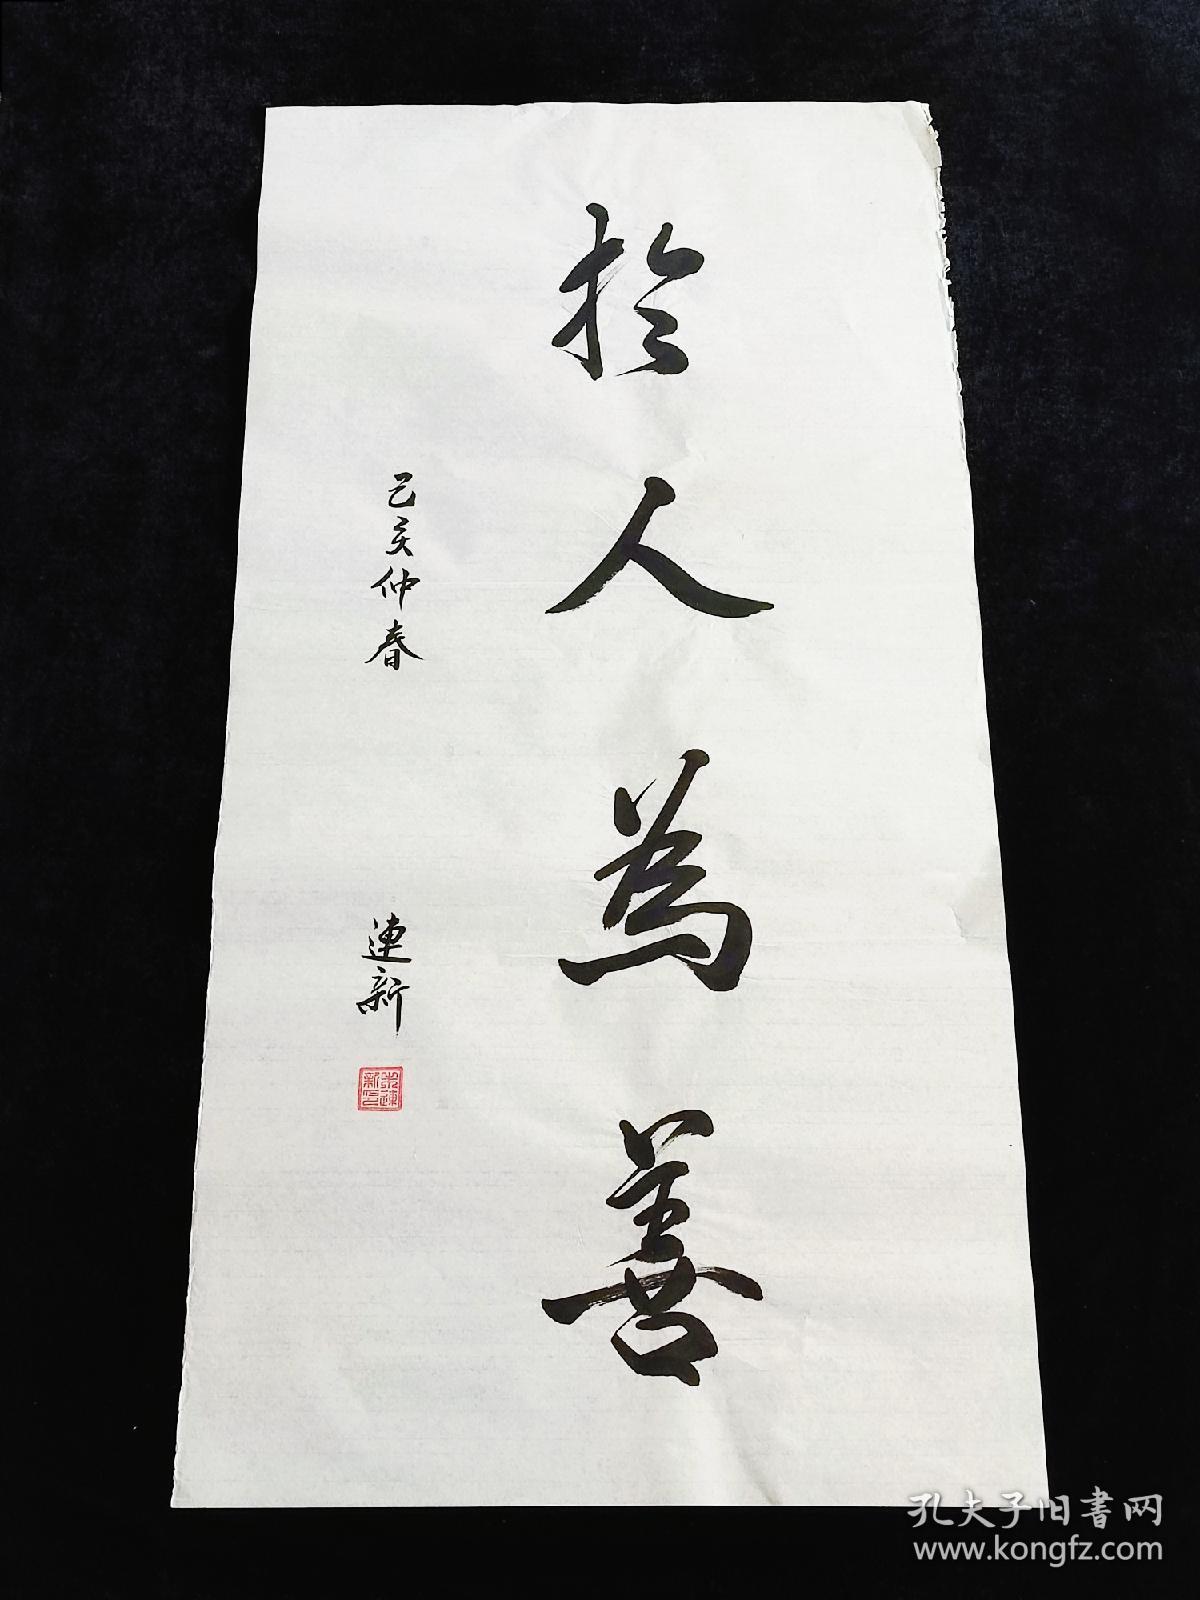 於人為善
己亥仲春
連新
孔夫子旧書网
www.kongfz.com